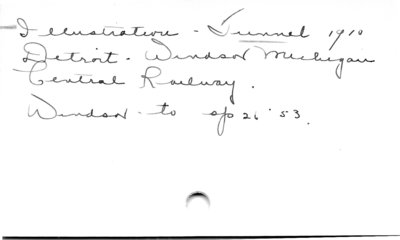 Illustration - Tunnel 1910
Detroit - Windsor Michigan
Central Railway.
Windsor - to ap 26 '53.